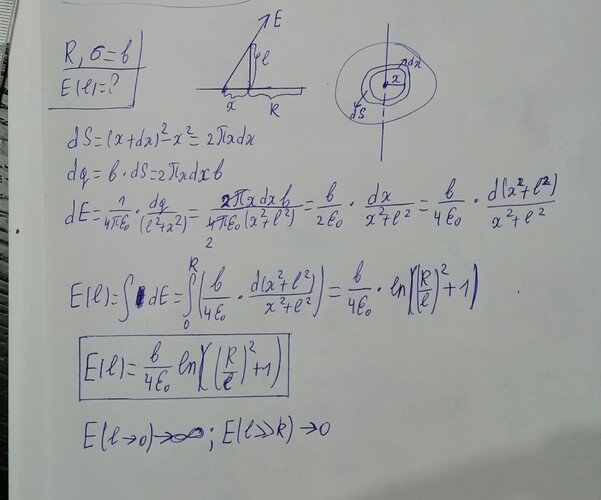 R, σ=b
E(l)=?
E
l
x
R
x
dx
dS
dS=(x+dx)²-x²=2πxdx
dq=b·dS=2πxdxb
dE=1/4πε₀·dq/(l²+x²)=2πxdxb/4πε₀(x²+l²)=b/2ε₀·dx/x²+l²=b/4ε₀·d(x²+l²)/x²+l²
2
E(l)=∫dE=∫₀ᴿ(b/4ε₀·d(x²+l²)/x²+l²)=b/4ε₀·ln((R/l)²+1)
E(l)=b/4ε₀ ln((R/l)²+1)
E(l→0)→∞; E(l≫R)→0